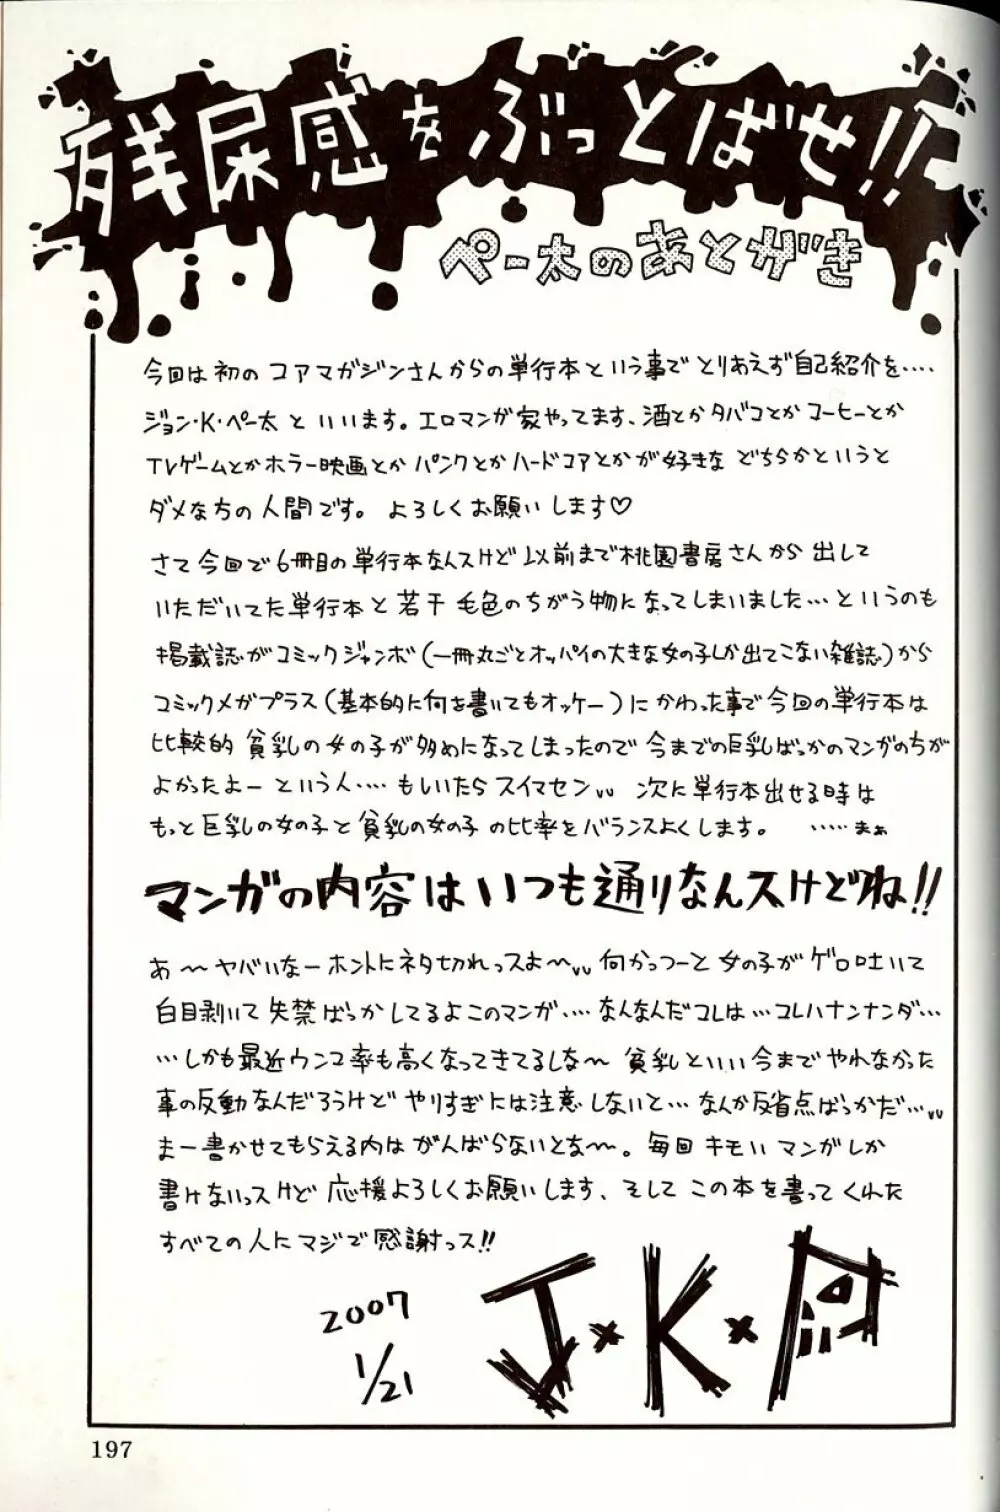 残尿感をぶっとばせ!!
ぺー太のあとがき
今回は初のコアマガジンさんからの単行本という事でとりあえず自己紹介を‥‥
ジョン・K・ペー太といいます。エロマンガ家やってます、酒とかタバコとかコーヒーとか
TVゲームとかホラー映画とかパンクとかハードコアとかが好きなどちらかというと
ダメな方の人間です。よろしくお願いします♡
さて今回で6冊目の単行本なんスけど以前まで桃園書房さんから出して
いただいてた単行本と若干毛色のちがう物になってしまいました…というのも
掲載誌がコミックジャンボ(一冊丸ごとオッパイの大きな女の子しか出てこない雑誌)から
コミックメガプラス(基本的に何を書いてもオッケー)にかわった事で今回の単行本は
比較的貧乳の女の子が多めになってしまったので今までの巨乳ばっかのマンガのちが
よかったよーという人‥‥もしいたらスイマセン 次に単行本出せる時は
もっと巨乳の女の子と貧乳の女の子の比率をバランスよくします。 ‥‥‥まぁ
マンガの内容はいつも通りなんスけどね!!
あ〜ヤバいなーホントにネタ切れっスよ〜 何かっつーと女の子がゲロ吐いて
白目剥いて失禁ばっかしてるよこのマンガ‥‥なんなんだコレは…コレハナンナンダ…
…しかも最近ウンコ率も高くなってきてるしな〜 貧乳といい今までやれなかった
事の反動なんだろうけどやりすぎには注意しないと…なんか反省点ばっかだ…
まー書かせてもらえる内はがんばらないとな〜。毎回キモいマンガしか
書けないっスけど応援よろしくお願いします、そしてこの本を買ってくれた
すべての人にマジで感謝っス!!
2007
1/21
J×K×P
197